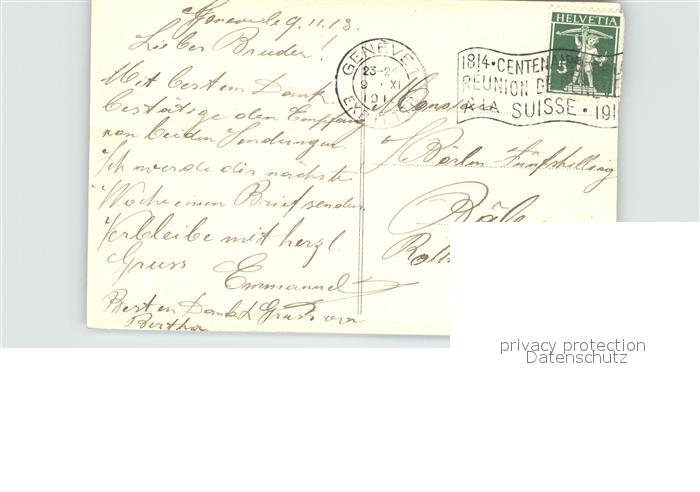 9.11.13.
Lieber Bruder!
Mit bestem Dank
bestätige den Empfang
von beiden Sendungen
Ich werde dir nächste
Woche einen Brief senden
Verbleibe mit herzl.
Gruss
Emmanuel
Besten Dank & Gruss von
Bertha
HELVETIA
5
GENÈVE 1
9 XI
1814 • CENTENAIRE
RÉUNION DE
A LA SUISSE • 191
Monsieur
Fünfschilling
Bâle
privacy protection
Datenschutz